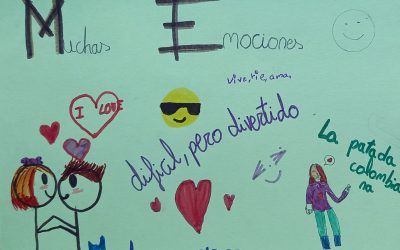 Muchas Emociones
vive, ríe, ama,
I LOVE
difícil, pero divertido
La patada
colombia
na